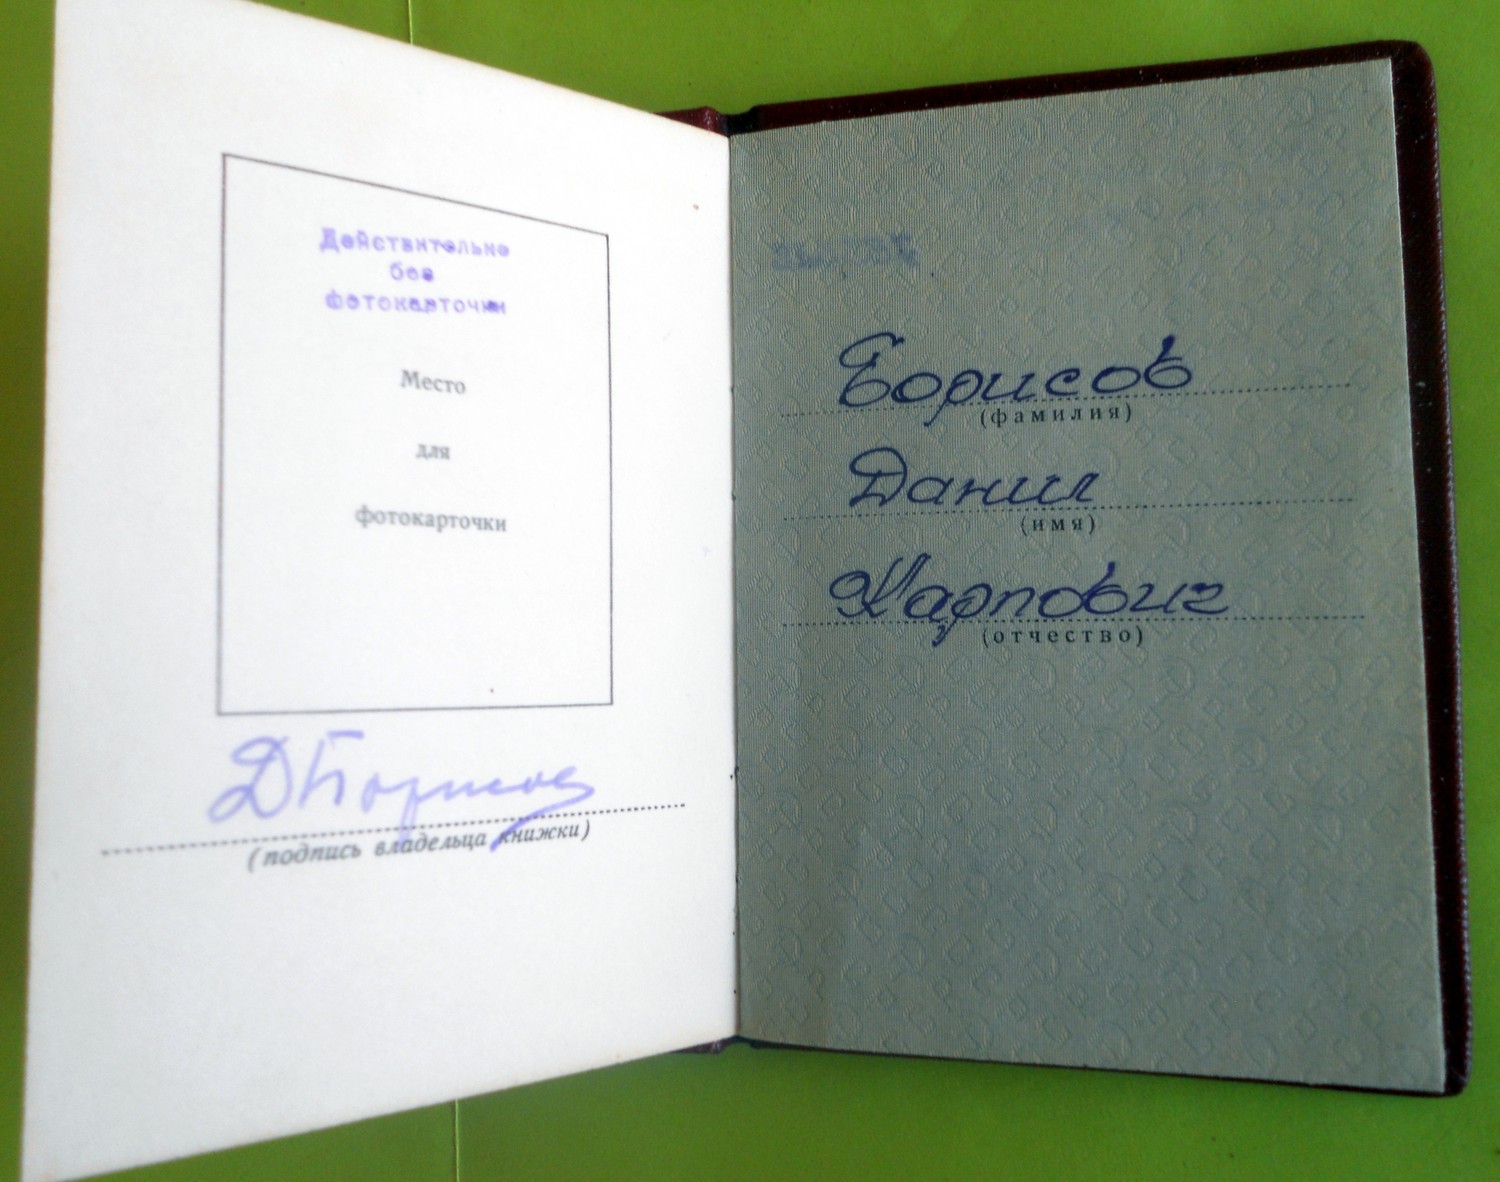 Действительно
без
фотокарточки
Место
для
фотокарточки
ДБорисов
(подпись владельца книжки)
Борисов
(фамилия)
Данил
(имя)
Карпович
(отчество)